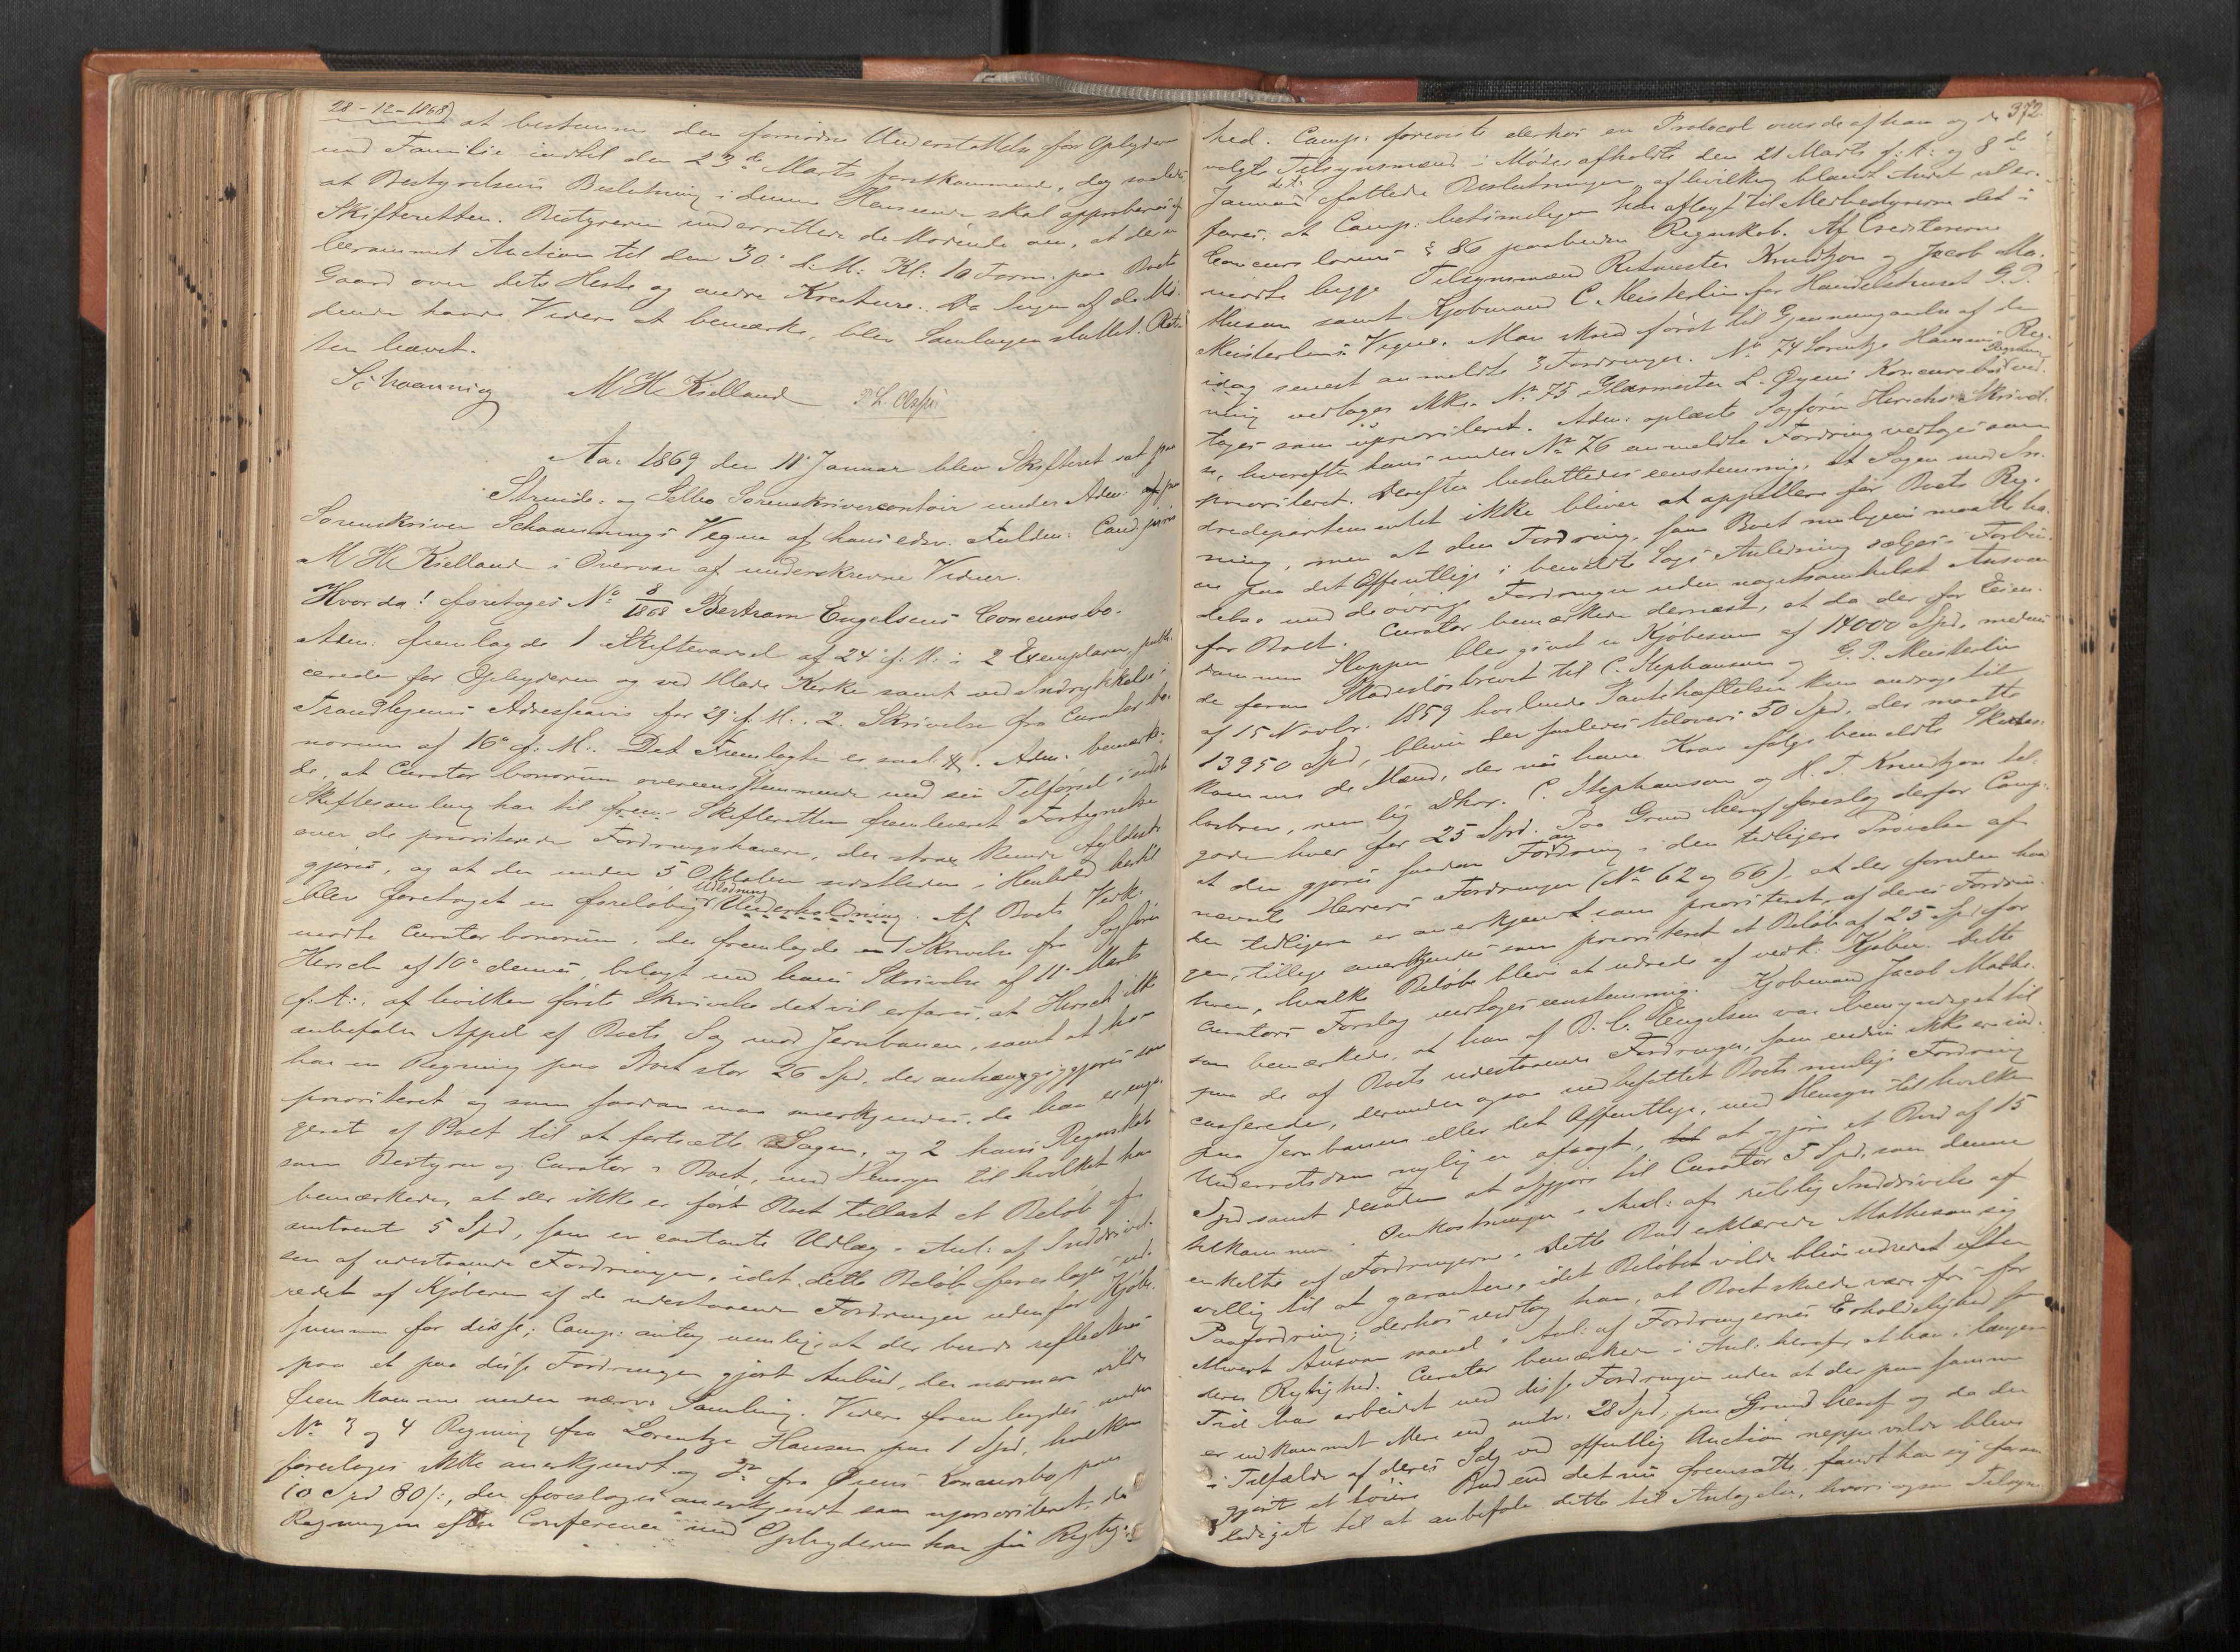 28-12-1868)
at bestemme den fornødne Understøttelse for Opbyderen
med Familie indtil den 23de Marts førstkommende, dog saaledes,
at Bestyrelsens Beslutning i denne Henseende skal approberes af
Skifteretten. Bestyreren underrettede de Mødende om, at der er
berammet Auction til den 30' d: M: Kl: 10 Form. paa Boets
Gaard over dets Heste og andre Kreaturer. Da Ingen af de Mø-
dende havde Videre at bemærke, blev Samlingen sluttet. Ret-
ten hævet.
Schaanning M H Kielland
Aar 1869 den 11' Januar blev Skifteret sat paa
Strinde- og Selbo Sorenskrivercontoir under Adm: af paa
Sorenskriver Schaannings Vegne af hans edsv. Fuldm: Cand juris
M H Kielland i Overvær af underskrevne Vidner.
Hvorda! foretoges No 8/1868 Bertram Engelsens Concursbo.
Adm: fremlagde 1 Skiftevarsel af 24' f: M: i 2 Exemplarer, publi-
cerede for Opbyderen og ved Lade Kirke samt ved Indrykkelse i
Trondhjems Adresseavis for 29' f. M:. 2. Skrivelse fra Curator bo-
norum af 16' f: M:. Det Fremlagte er saal. Adm. bemærke-
de, at Curator bonorum overeensstemmende med sin Tilførsel i sidste
Skiftesamling har til Skifteretten fremleveret Fortegnelse
over de prioriterede Fordringshavere, der strax kunde fyldest-
gjøres, og at der under 5 Oktober sidstleden i Henhold hertil
blev foretaget en foreløbig Udlodning. Af Boets Vedk:
mødte Curator bonorum, der fremlagde 1 Skrivelse fra Sagfører
Hersch af 10' dennes, belagt med hans Skrivelse af 11' Marts
f: A:, af hvilken første Skrivelse det vil erfares, at Hersch ikke
anbefaler Appel af Boets Sag mod Jernbanen, samt at han
har en Regning paa Boet stor 26 Spd. der anhængiggjøres som
prioriteret og som saadan maa anerkjendes, da han er enga-
geret af Boet til at fortsætte Sagen, og 2 hans Regnskab
som Bestyrer og Curator i Boet, med Hensyn til hvilket han
bemærkede, at der ikke er ført Boet tillast et Beløb af
omtrent 5 Spd, som er contante Udlæg i Anl: af Inddrivel-
sen af udestaaende Fordringer, idet dette Beløb foreslaaes ud-
redet af Kjøberen af de udestaaende Fordringer udenfor Kjøbe-
summen for disse; Comp: antog nemlig, at der burde reflecteres
paa et paa disse Fordringer gjort Anbud, der nærmere vilde
fremkomme under nærv: Samling. Videre fremlagdes under
No 3 og 4 Regning fra Lorentze Hansen paa 1 Spd, hvilken
foreslaaes ikke anerkjendt og fra Øiens Concursbo paa
10 Spd 80/:, der foreslaaes anerkjendt som uprioriteret, da
Regningen efter Conference med Opbyderen har sin Rigtig-
372
hed. Comp: foreviste derhos en Protocol over de af ham og de
valgte Tilsynsmænd i Møder afholdte den 21 Marts f: A: og 8de
Januar fattede Beslutninger, af hvilke blandt Andet vil er-
fares, at Comp: betimeligen har aflagt til Medbestyrerne det i
Concurslovens § 86 paabudne Regnskab. Af Creditorerne
mødte begge Tilsynsmænd Ritmester Knudtzon og Jacob Ma-
thesen samt Kjøbmand C. Meisterlin for Handelshuset G. P.
Meisterlins Vegne. Man skred først til Gjennemgaaelse af de
idag senest anmeldte 3 Fordringer. No 74 Lorentze Hansens Reg-
ning vedtoges ikke. No 75 Glasmester L. Øyens Koncursbos Regning ved-
toges som uprioriteret. Adm: oplæste Sagfører Herschs Skrivel-
se, hvorefter hans under No 76 anmeldte Fordring vedtoges som
prioriteret. Derefter besluttedes eenstemmig, at Sagen mod In-
dredepartementet ikke bliver at appellere for Boets Reg-
ning, men at den Fordring, som Boet muligens maatte ha-
ve paa det Offentlige i bemeldte Sags Anledning sælges i Forbin-
delse med de øvrige Fordringer uden nogetsomhelst Ansvar
for Boet. Curator bemærkede dernæst, at da der for Eien-
dommen Stuppen blev givet en Kjøbesum af 14000 Spd, medens
de foran Skadesløsbrevet til C. Stephansen og G. P. Meisterlin
af 15 Novbr. 1859 hæftende Pantehæftelser kun androge til
13950 Spd, bliver der saaledes tilovers 50 Spd, der maatte
komme de Mænd, der nu have Krav ifølge bemeldte Skades-
løsbrev, nemlig DHrr. C. Stephanson og H. T. Knudtzon til-
gode hver for 25 Spd. Paa Grund heraf foreslog derfor Comp:
at der gjøres saadan Forandring i den tidligere Prøvelse af
nævnte Herrers Fordringer (No 62 og 66), at der foruden hvad
der tidligere er anerkjendt som prioriteret af deres Fordrin-
ger, tillige anerkjendes som prioriteret et Beløb af 25 Spd for
hver, hvilke Beløb blev at udrede af vedk: Kjøber. Dette
Curators Forslag vedtoges eenstemmig. Kjøbmand Jacob Mathe-
sen bemærkede, at han af B. C. Engelsen var bemyndiget til
paa de af Boets udestaaende Fordringer, som endnu ikke er ind-
casserede, derunder ogsaa indbefattet Boets mulige Fordring
paa Jernbanen eller det Offentlige, med Hensyn til hvilken
Underretsdom nylig er afsagt, at gjøre et Bud af 15
Spd samt desuden at opgjøre til Curator 5 Spd, som denne
tilkommer i Omkostninger i Anl: af retslig Inddrivelse af
enkelte af Fordringerne. Dette Bud erklærede Mathesen sig
villig til at garantere, idet Beløbet vilde blive udredet efter
Paafordring; derhos vedtog han, at Boet skulde være fri for
ethvert Ansvar saavel i Anl: af Fordringernes Erholdelighed som
deres Rigtighed. Curator bemærkede i Anl: heraf, at han i længere
Tid har arbeidet med disse Fordringer uden at der paa samme
er indkommet Mere end omtr. 28 Spd; paa Grund heraf og da der
i Tilfælde af deres Salg ved offentlig Auction neppe vilde blive
gjort et høiere Bud end det nu fremsatte, fandt han sig foran-
lediget til at anbefale dette til Antagelse, hvori ogsaa Tilsyns-